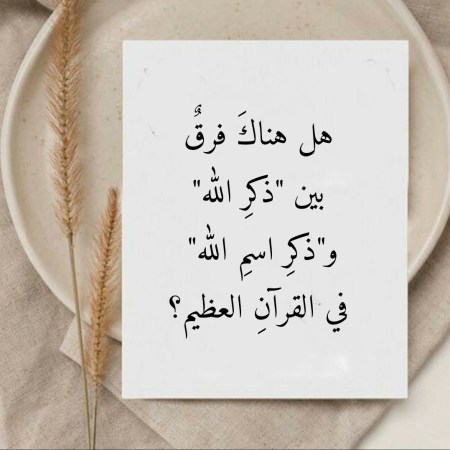 هل هناكَ فرقٌ
بين "ذكرِ الله"
و"ذكرِ اسمِ الله"
في القرآنِ العظيم؟